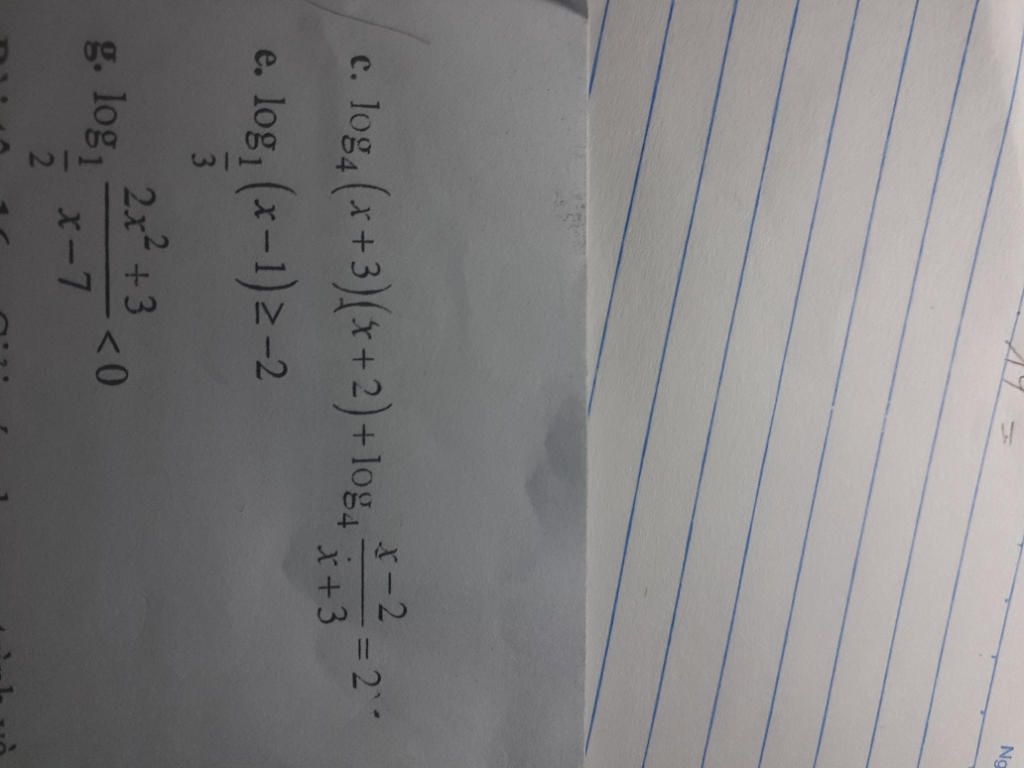 c. log₄(x + 3)(x + 2) + log₄ (x − 2)/(x + 3) = 2
e. log_{1/3}(x − 1) ≥ −2
g. log_{1/2} (2x² + 3)/(x − 7) < 0
Ng